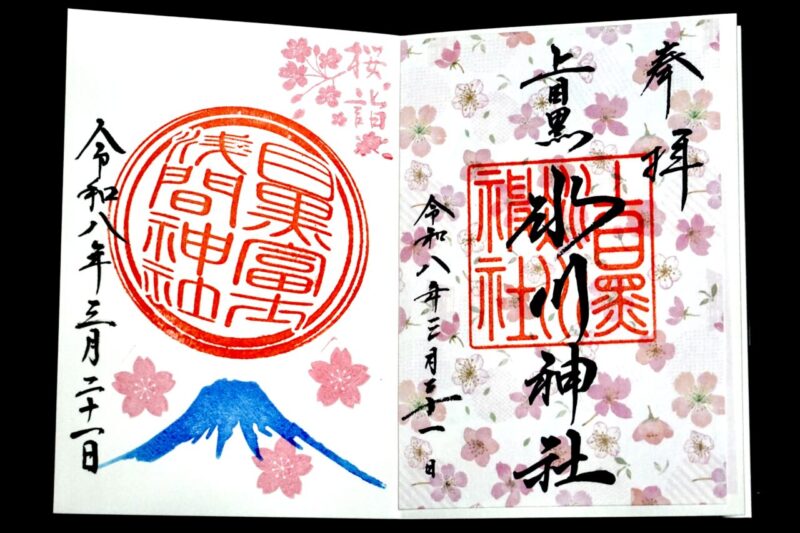 奉拝
上目黒
氷川神社
令和八年三月二十一日
上目黒氷川神社
桜詣
目黒富士
浅間神社
令和八年三月二十一日